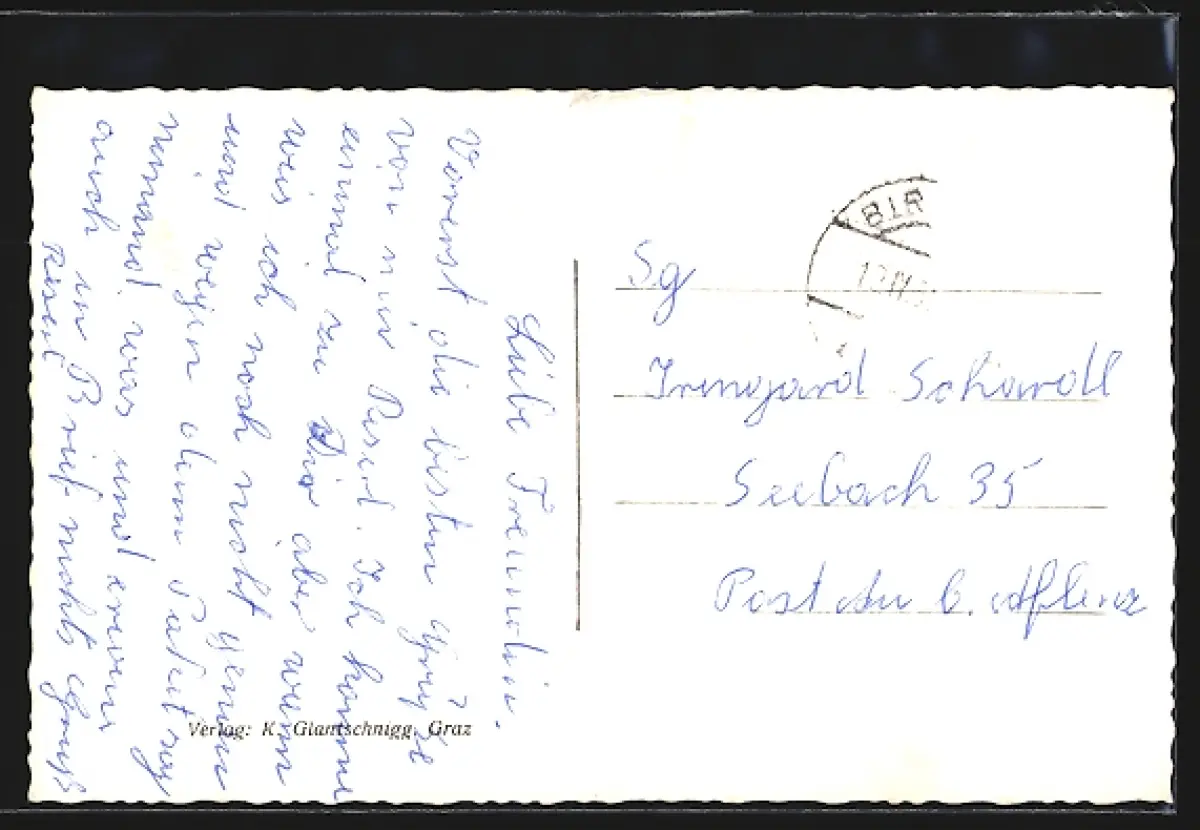 Liebe Freundin.
Vorerst die besten Grüße
von mir Resel. Ich komme
einmal zu Dir aber wann
weis ich noch nicht genau
und wegen dem sag
niemand was und
auch in Brief nichts Gruß
Resel
Verlag: K. Glantschnigg, Graz
BIR
Sg
Irmgard Scharoll
Seebach 35
Post Au b. Aflenz